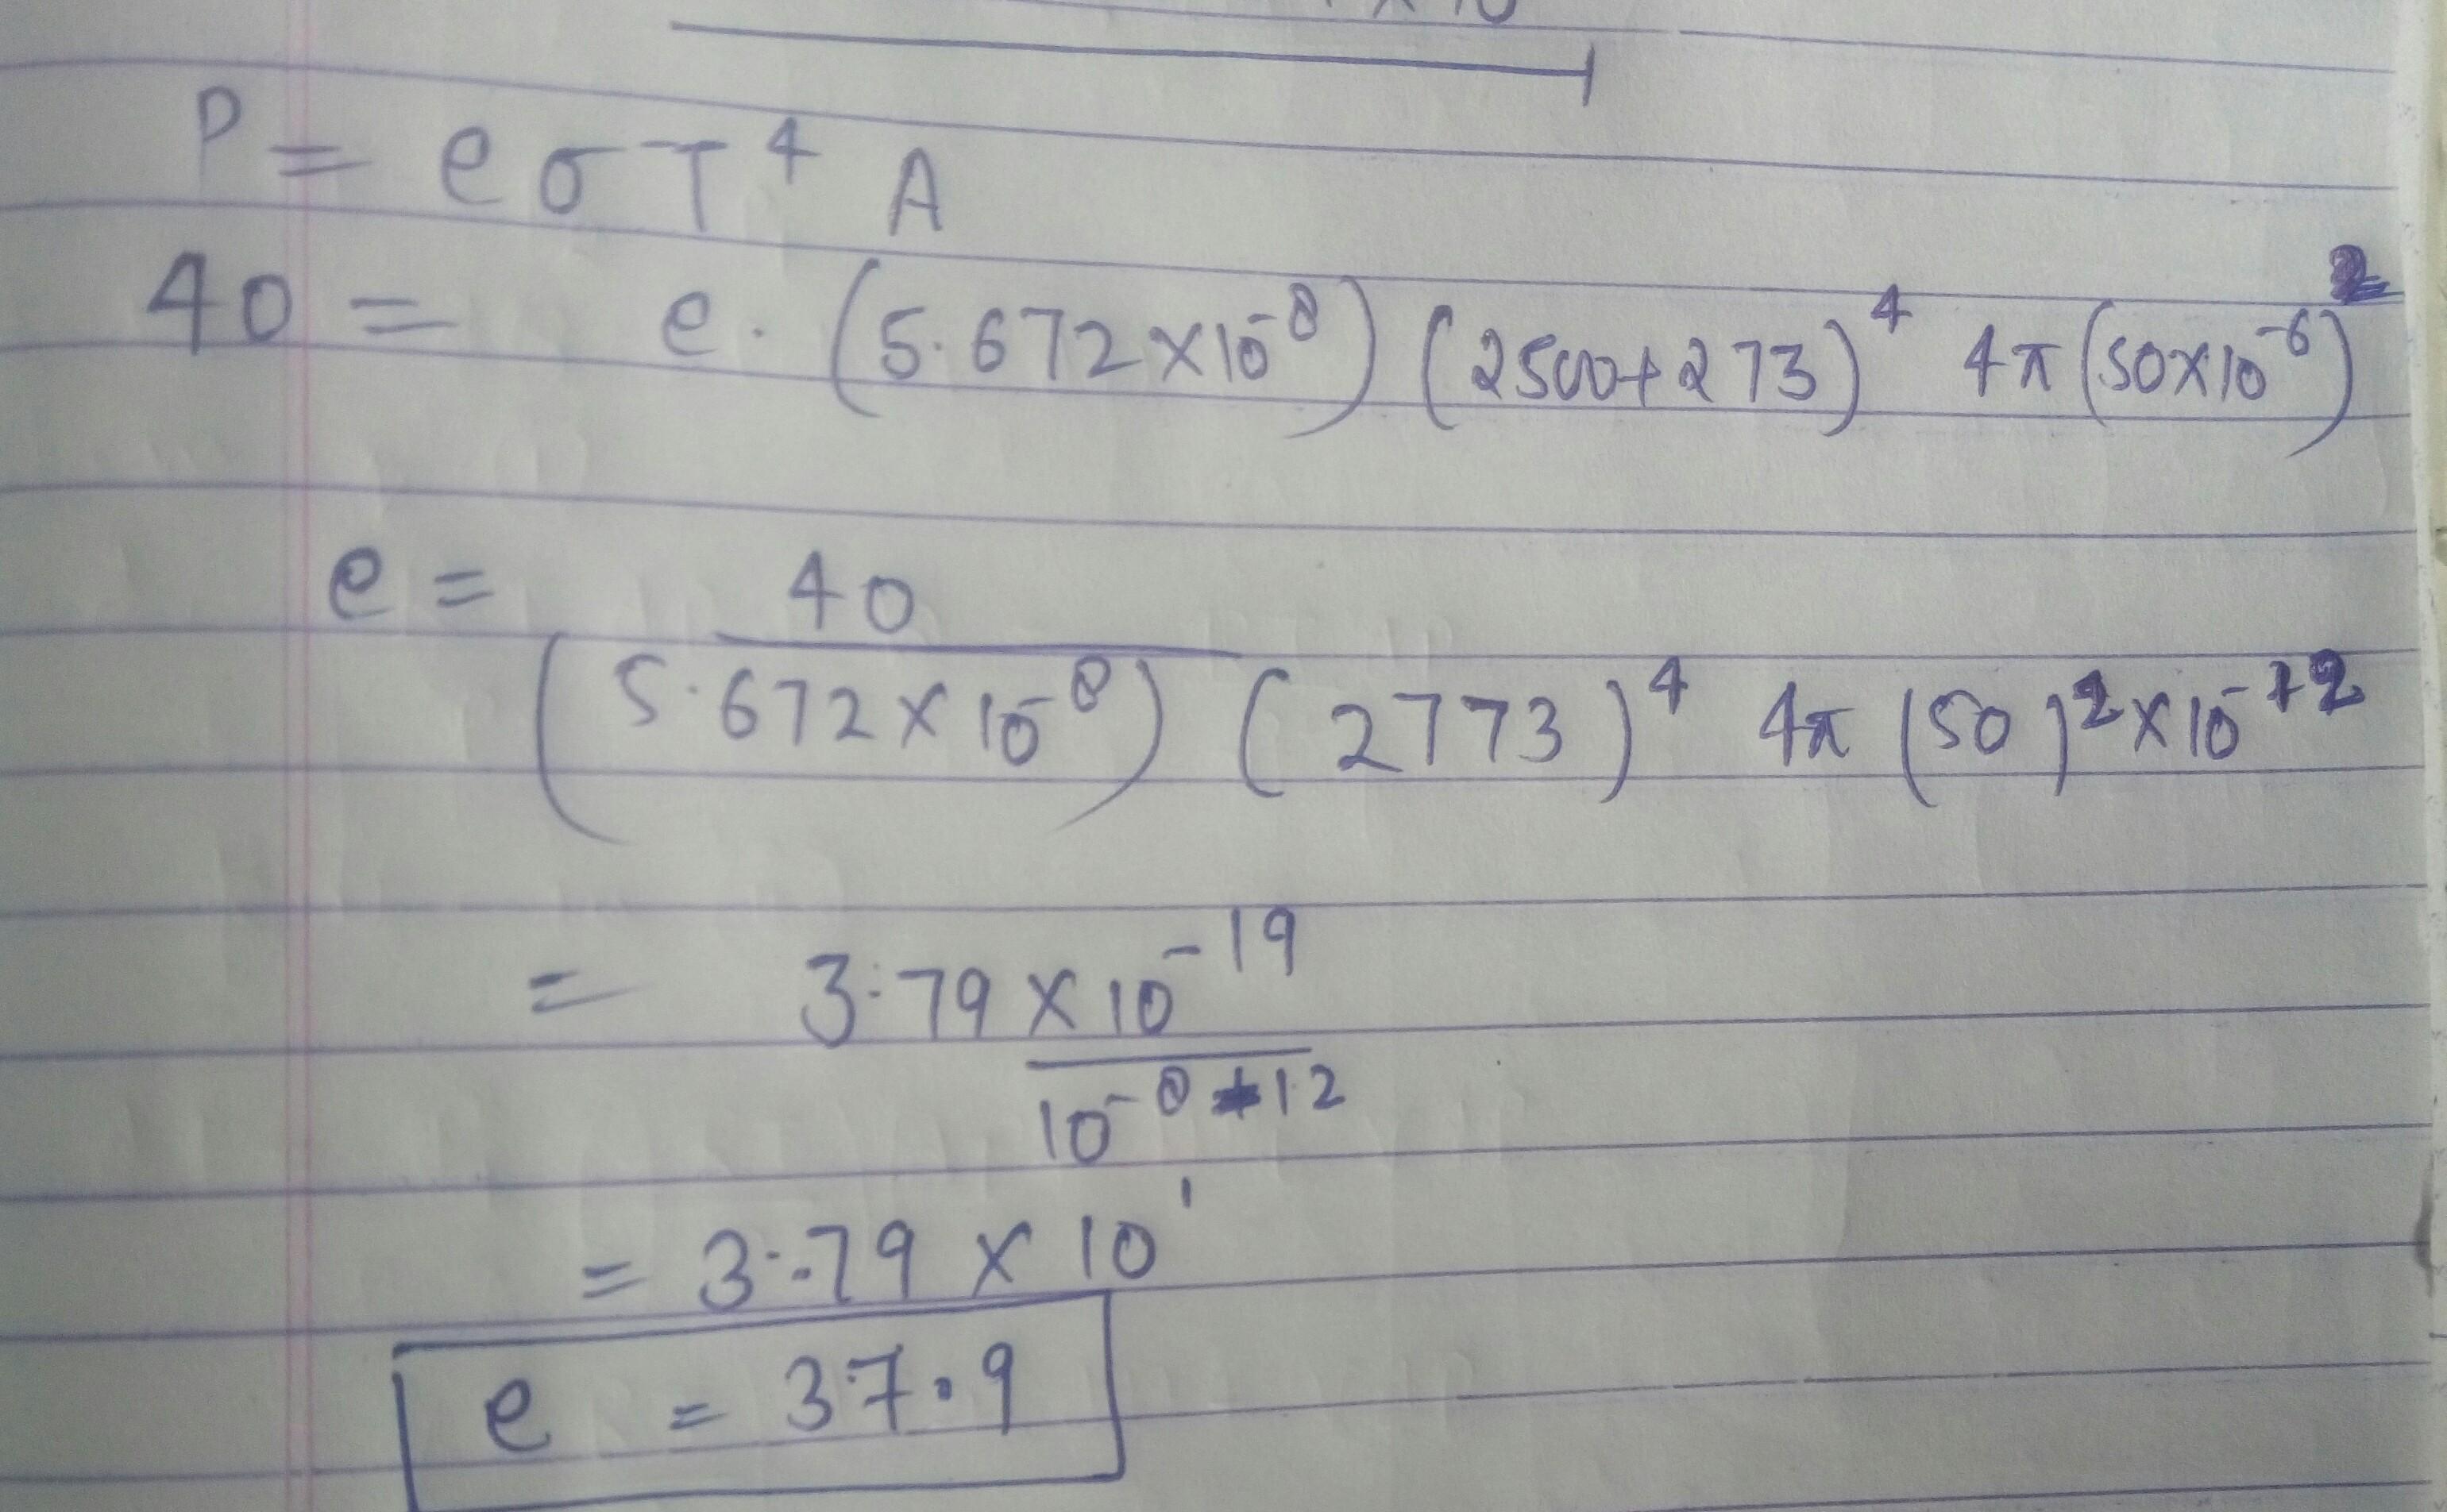 P = e σ T⁴ A
40 = e. (5.672×10⁻⁸) (2500+273)⁴ 4π (50×10⁻⁶)²
e = 40
(5.672×10⁻⁸) (2773)⁴ 4π (50)²×10⁻¹²
= 3.79 × 10⁻¹⁹
10⁻⁸⁻¹²
= 3.79 × 10¹
e = 37.9